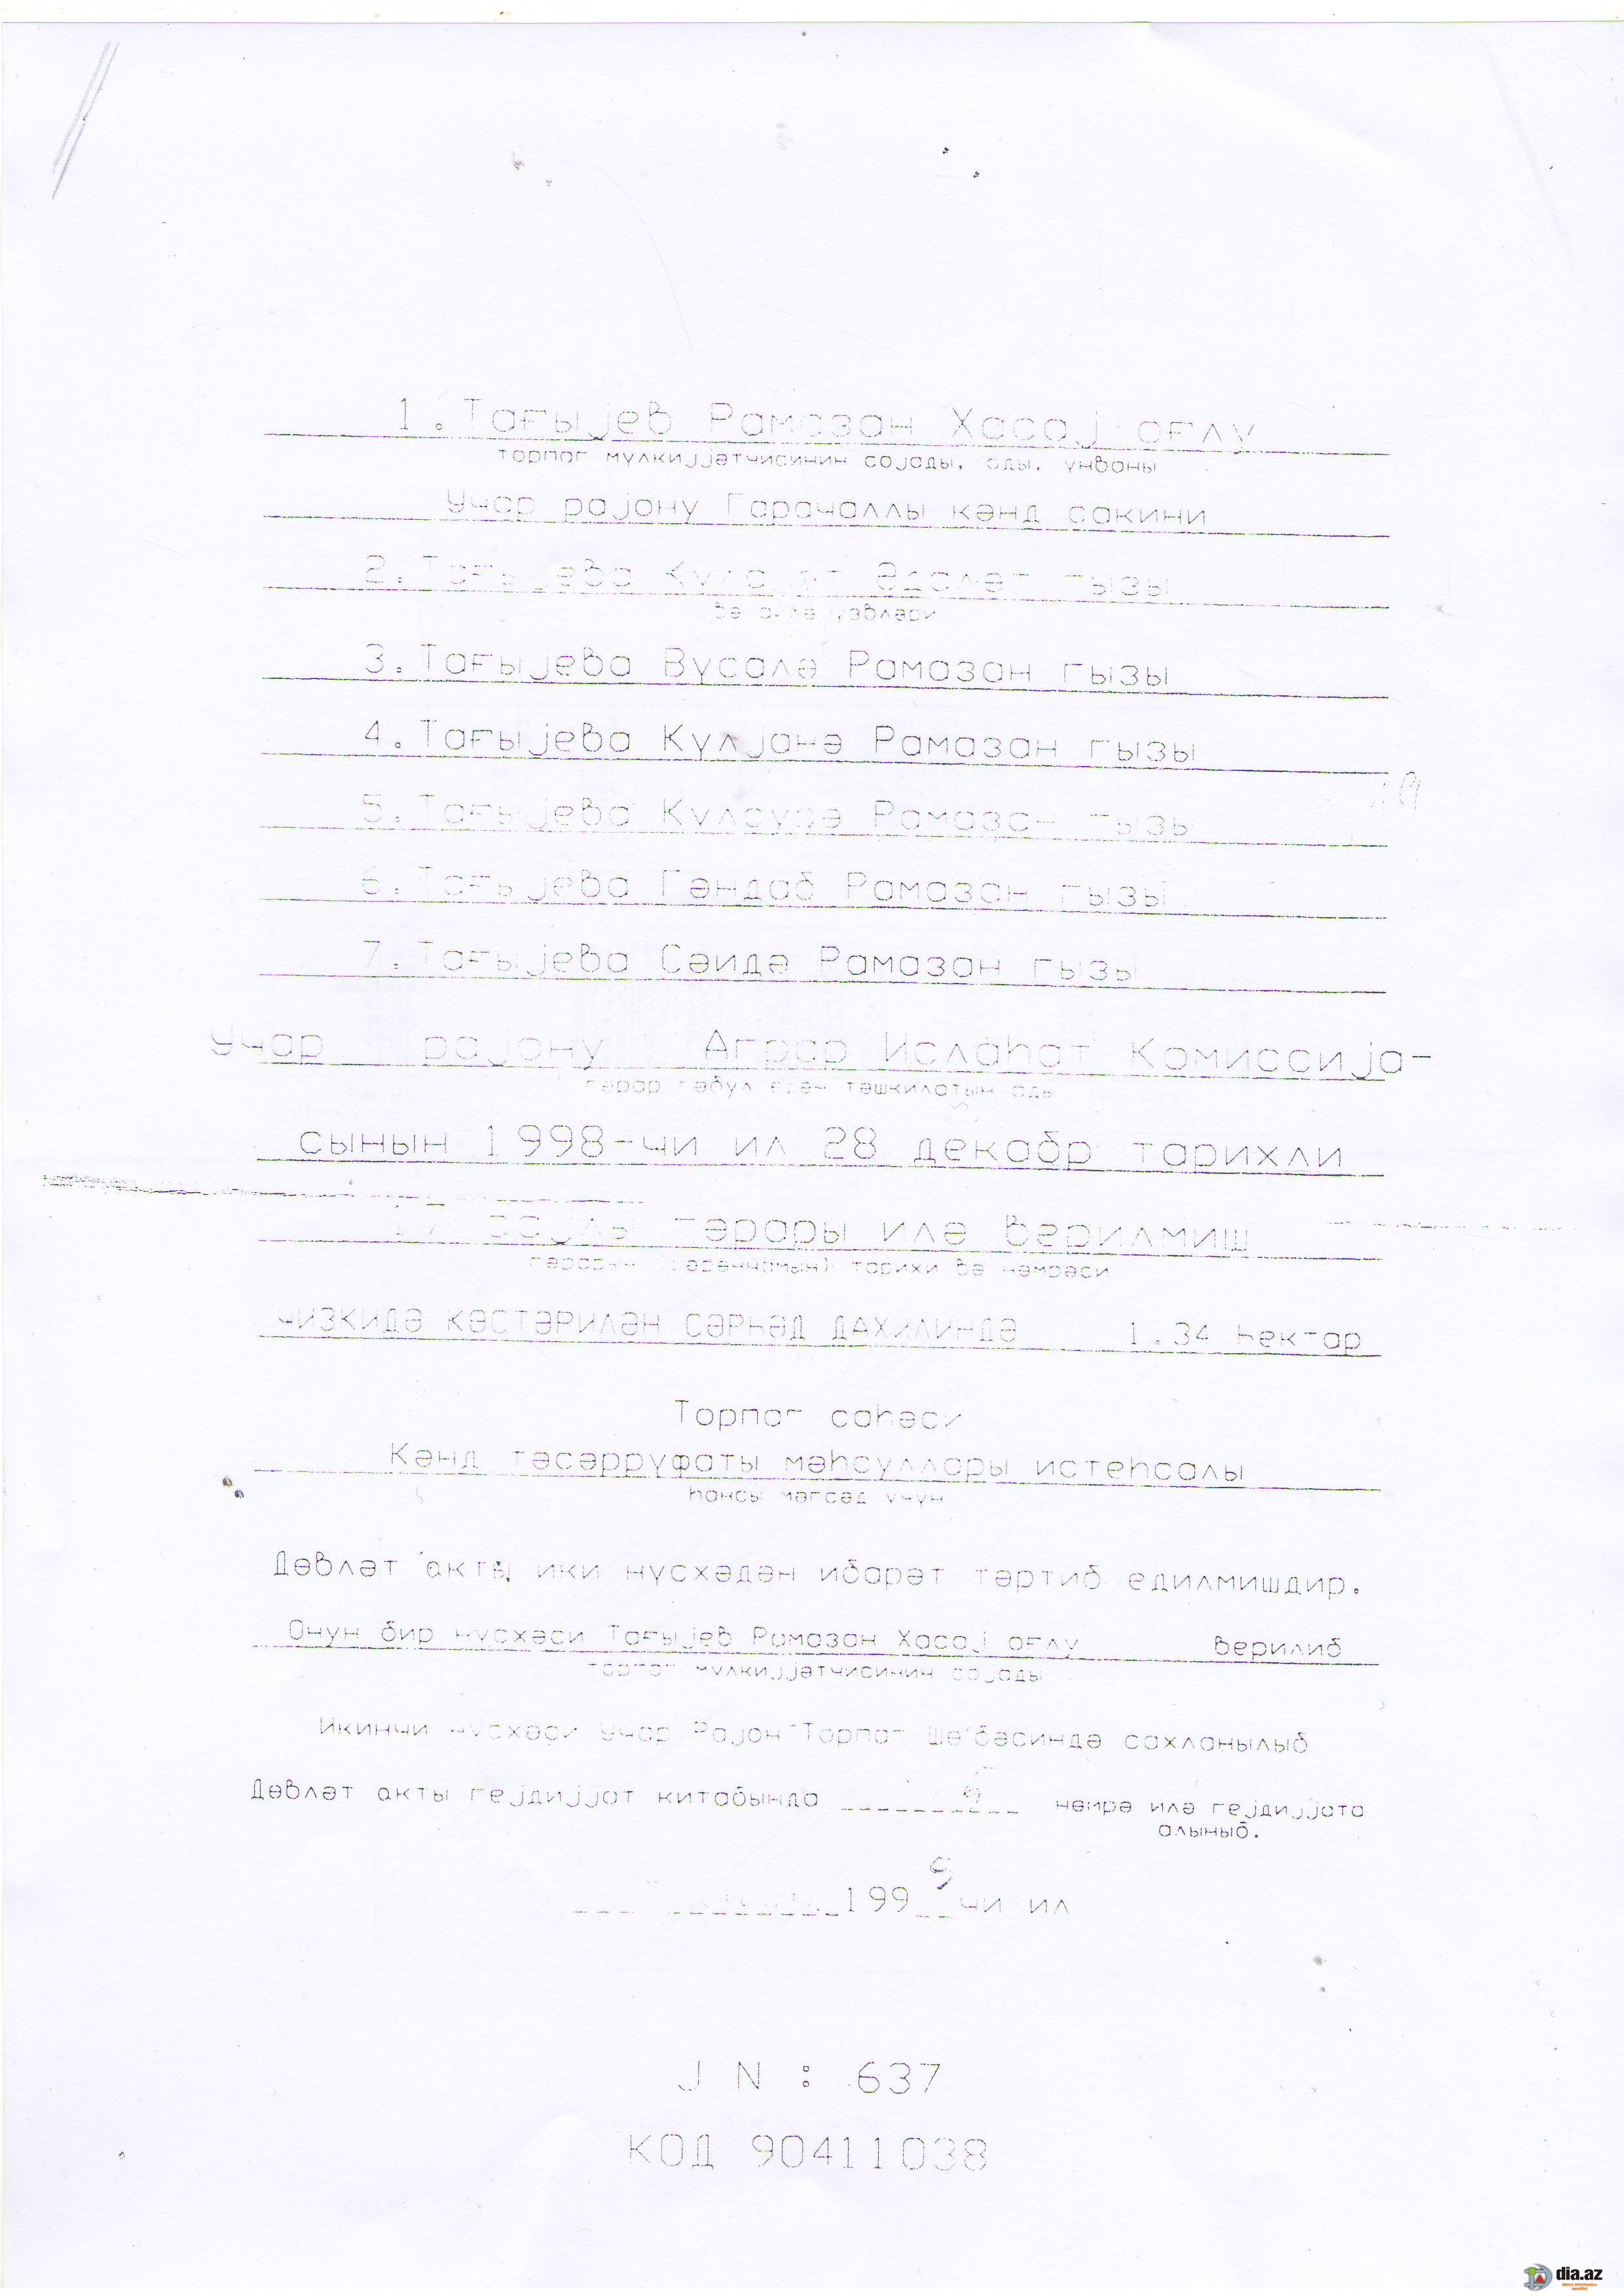 1.Тағыјев Рамазан Хасај оғлу
торпаг мүлкијјәтчисинин сојады, ады, үнваны
Учар рајону Гарачаллы кәнд сакини
2.Тағыјева гызы
вә аилә үзвләри
3.Тағыјева Вүсалә Рамазан гызы
4.Тағыјева Күлјанә Рамазан гызы
5.Тағыјева Рамазан гызы
6.Тағыјева Гәндаб Рамазан гызы
7.Тағыјева Сәидә Рамазан гызы
Учар рајону Аграр Ислаһат Комиссија-
гәрар гәбул едән тәшкилатын ады
сынын 1998-чи ил 28 декабр тарихли
сајлы гәрары илә верилмиш
тарихи вә нөмрәси
ЧИЗКИДӘ КӨСТӘРИЛӘН СӘРҺӘД ДАХИЛИНДӘ 1.34 һектар
Торпаг саһәси
Кәнд тәсәррүфаты мәһсуллары истеһсалы
һансы мәгсәд үчүн
Дөвләт акты ики нүсхәдән ибарәт тәртиб едилмишдир.
Онун бир нүсхәси Тағыјев Рамазан Хасај оғлу верилиб
торпаг мүлкијјәтчисинин сојады
Икинчи нүсхәси Учар Рајон Торпаг Шө'бәсиндә сахланылыб
Дөвләт акты гејдијјат китабында нөмрә илә гејдијјата
алыныб.
199 9 чи ил
J N : 637
КОД 90411038
dia.az